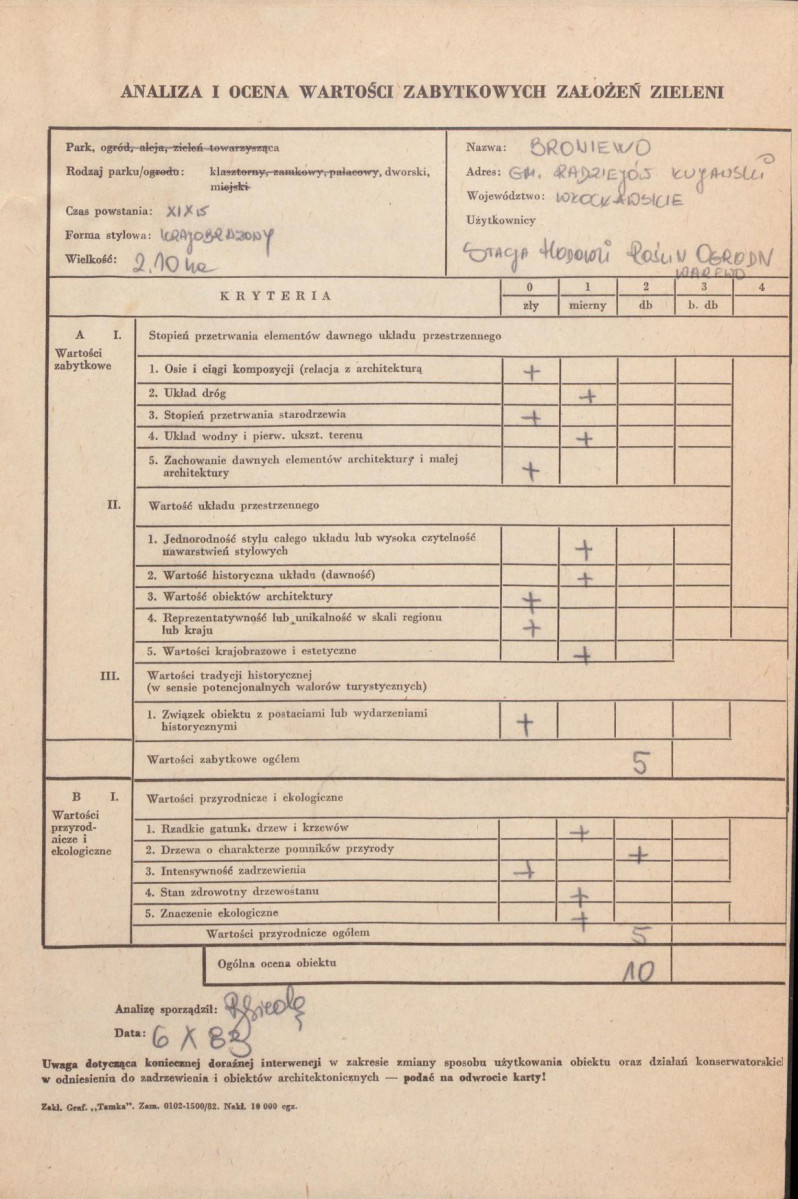 ANALIZA I OCENA WARTOŚCI ZABYTKOWYCH ZAŁOŻEŃ ZIELENI
Park, ogród, aleja, zieleń towarzysząca
Rodzaj parku/ogrodu: klasztorny, zamkowy, pałacowy, dworski,
miejski
Czas powstania: XIX
Forma stylowa: KRAJOBRAZOWY
Wielkość: 2,10 ha
Nazwa: BRONIEWO
Adres: GM. RADZIEJÓW KUJAWSKI
Województwo: WŁOCŁAWSKIE
Użytkownicy
STACJA HODOWLI ROŚLIN OGRODN
KRYTERIA
0 1 2 3 4
zły mierny db b. db
A I. Stopień przetrwania elementów dawnego układu przestrzennego
Wartości
zabytkowe
1. Osie i ciągi kompozycji (relacja z architekturą +
2. Układ dróg +
3. Stopień przetrwania starodrzewia +
4. Układ wodny i pierw. ukszt. terenu +
5. Zachowanie dawnych elementów architektury i małej
architektury +
II. Wartość układu przestrzennego
1. Jednorodność stylu całego układu lub wysoka czytelność
nawarstwień stylowych +
2. Wartość historyczna układu (dawność) +
3. Wartość obiektów architektury +
4. Reprezentatywność lub unikalność w skali regionu
lub kraju +
5. Wartości krajobrazowe i estetyczne +
III. Wartości tradycji historycznej
(w sensie potencjonalnych walorów turystycznych)
1. Związek obiektu z postaciami lub wydarzeniami
historycznymi +
Wartości zabytkowe ogółem 5
B I. Wartości przyrodnicze i ekologiczne
Wartości
przyrod-
nicze i
ekologiczne
1. Rzadkie gatunki drzew i krzewów +
2. Drzewa o charakterze pomników przyrody +
3. Intensywność zadrzewienia +
4. Stan zdrowotny drzewostanu +
5. Znaczenie ekologiczne +
Wartości przyrodnicze ogółem 5
Ogólna ocena obiektu 10
Analizę sporządził:
Data: 6 X 83
Uwaga dotycząca koniecznej doraźnej interwencji w zakresie zmiany sposobu użytkowania obiektu oraz działań konserwatorskich
w odniesieniu do zadrzewienia i obiektów architektonicznych — podać na odwrocie karty!
Zakł. Graf. „Tamka". Zam. 0102-1500/82. Nakł. 10 000 egz.